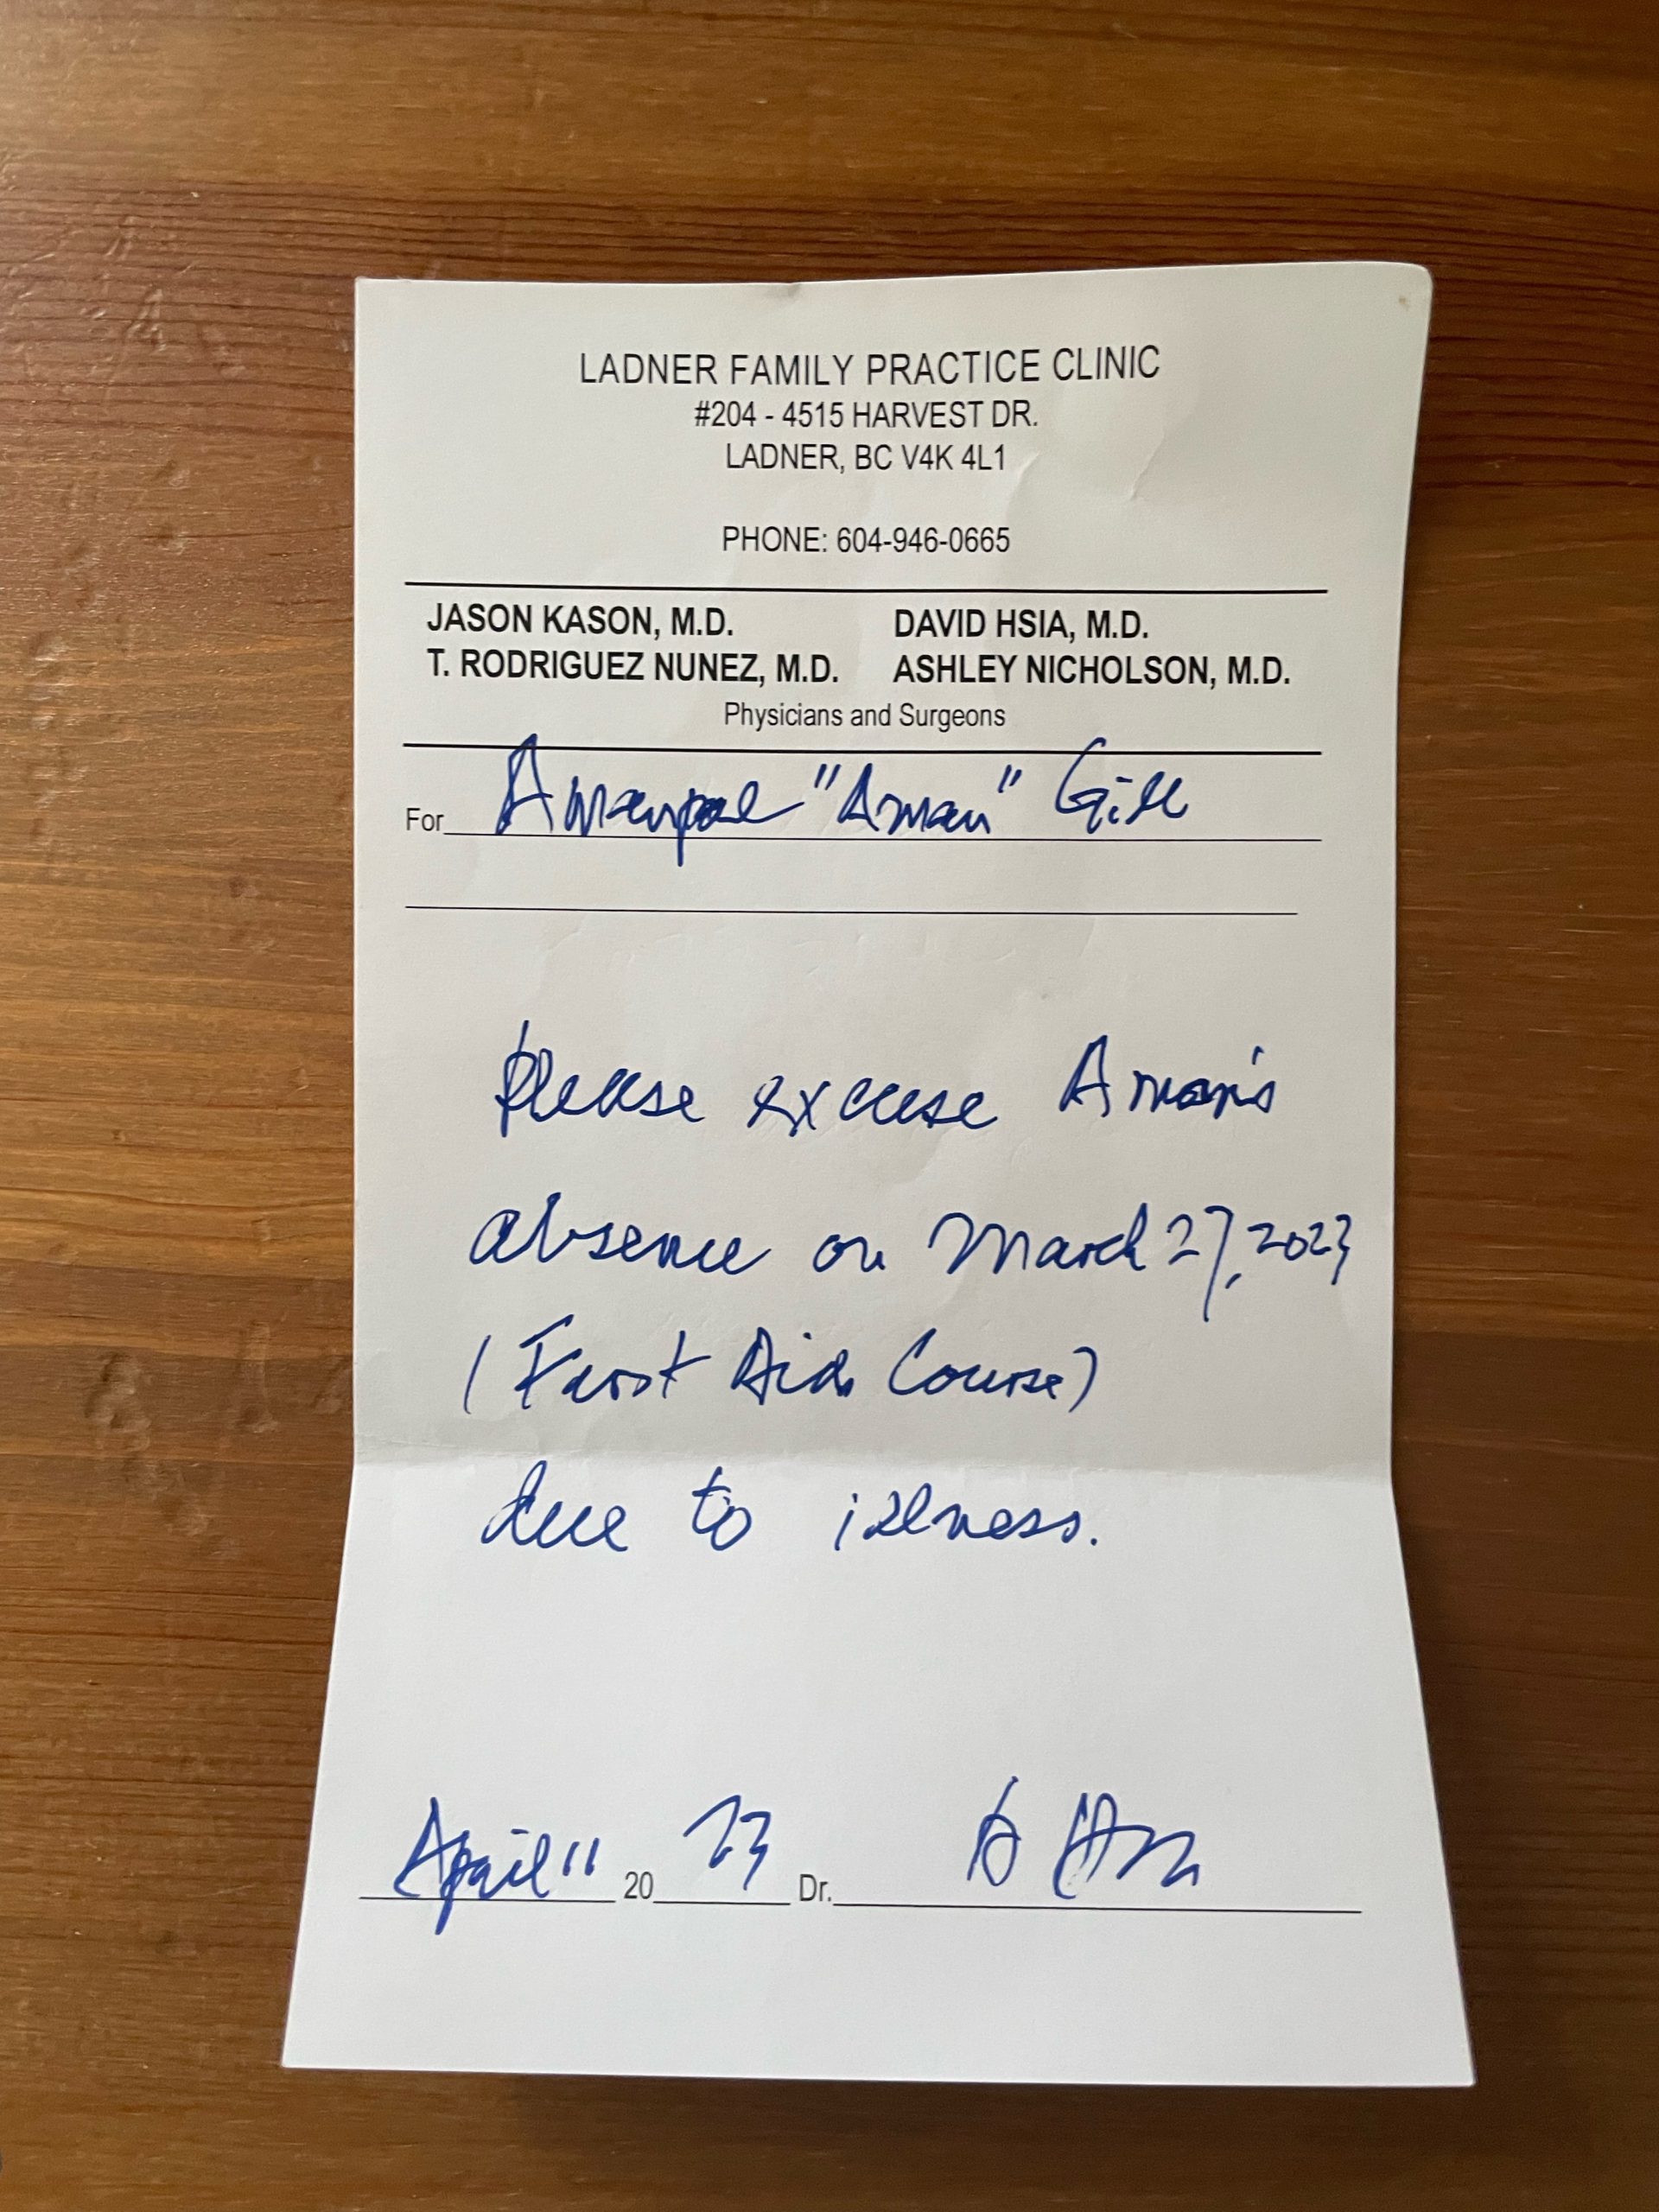 LADNER FAMILY PRACTICE CLINIC
#204 - 4515 HARVEST DR.
LADNER, BC V4K 4L1
PHONE: 604-946-0665
JASON KASON, M.D. DAVID HSIA, M.D.
T. RODRIGUEZ NUNEZ, M.D. ASHLEY NICHOLSON, M.D.
Physicians and Surgeons
For Amanpal "Aman" Gill
Please excuse Aman's
absence on March 27, 2023
(First Aid Course)
due to illness.
April 11 20 23 Dr. D Hsia